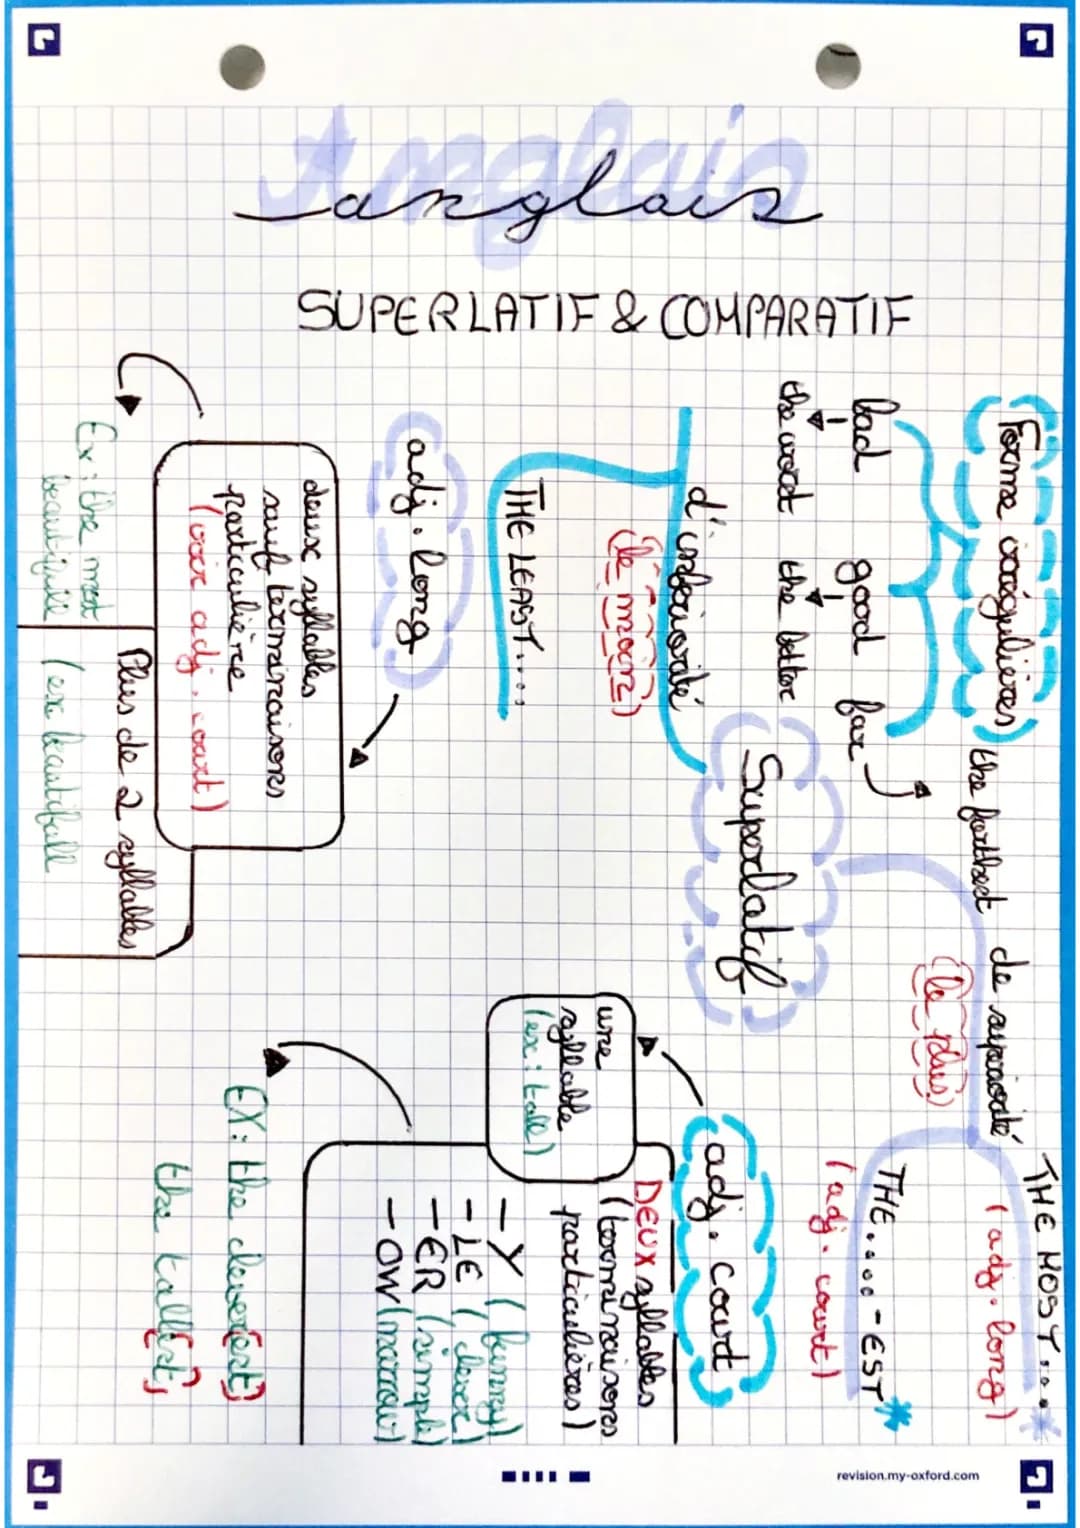 Anglais
anglais
SUPERLATIF & COMPARATIF
Forme irrégulières
bad good far
the worst the better the farthest
de supériorité
(le plus)
THE MOST....*
(adj. long)
THE.....-EST*
(adj. court)
Superlatif
d'infériorité
(le moins)
THE LEAST....
adj. long
deux syllabes
sauf terminaisons
particulière
(voir adj. court)
Plus de 2 syllabes
(ex beautifull
Ex: the most
beautifull
adj. court
une
syllable
(ex: tall)
DEUX syllables
(terminaisons
particulières)
-Y (funny)
-LE (clever)
-ER (simple)
-OW (narrow)
EX: the cleverest,
the tallest,
revision.my-oxford.com